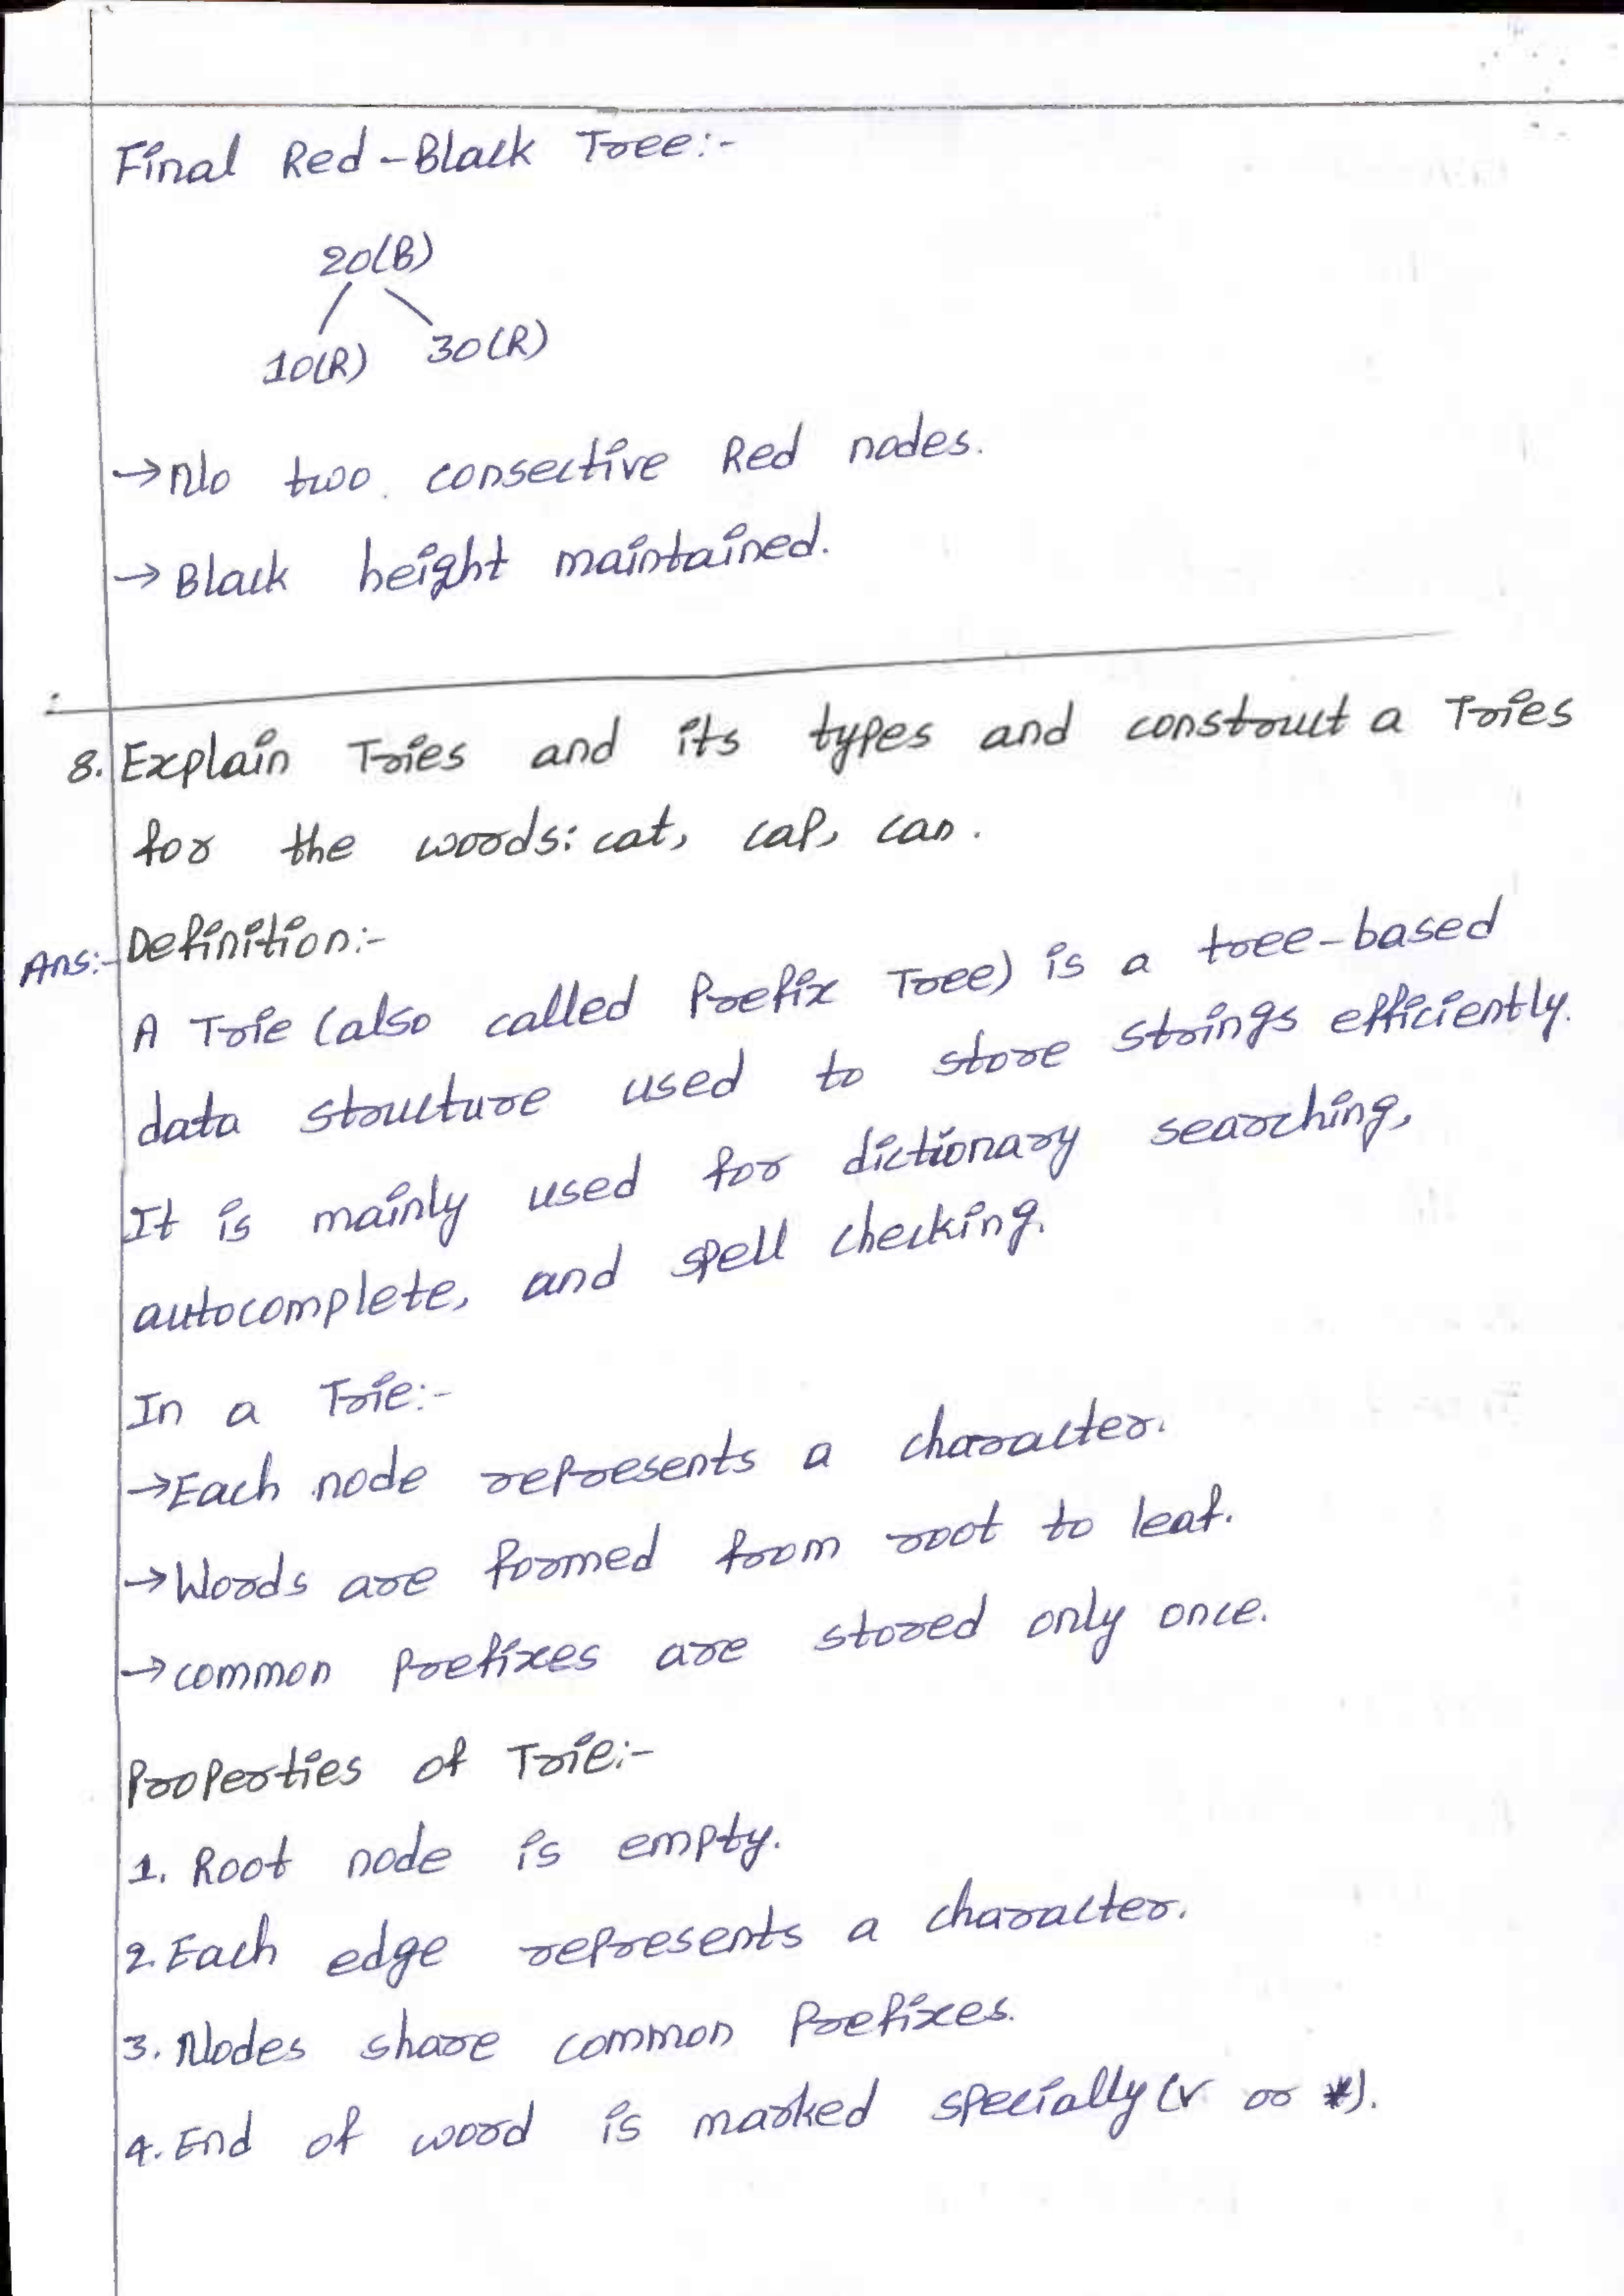 Final Red-Black Tree:-
20(B)
10(R) 30(R)
→No two consective Red nodes.
→Black height maintained.
8. Explain Tries and its types and construct a Tries
for the words: cat, cap, can.
Ans:- Definition:-
A Trie (also called Prefix Tree) is a tree-based
data structure used to store strings efficiently.
It is mainly used for dictionary searching,
autocomplete, and spell checking.
In a Trie:-
→Each node represents a character.
→Words are formed from root to leaf.
→common Prefixes are stored only once.
Properties of Trie:-
1. Root node is empty.
2. Each edge represents a character.
3. Nodes share common Prefixes.
4. End of word is marked specially (✓ or *).